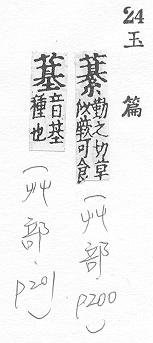 24
玉篇
藄
勤之切草
似蕨可食
(艸部.p200)
音基
種也
(艸部.p201)